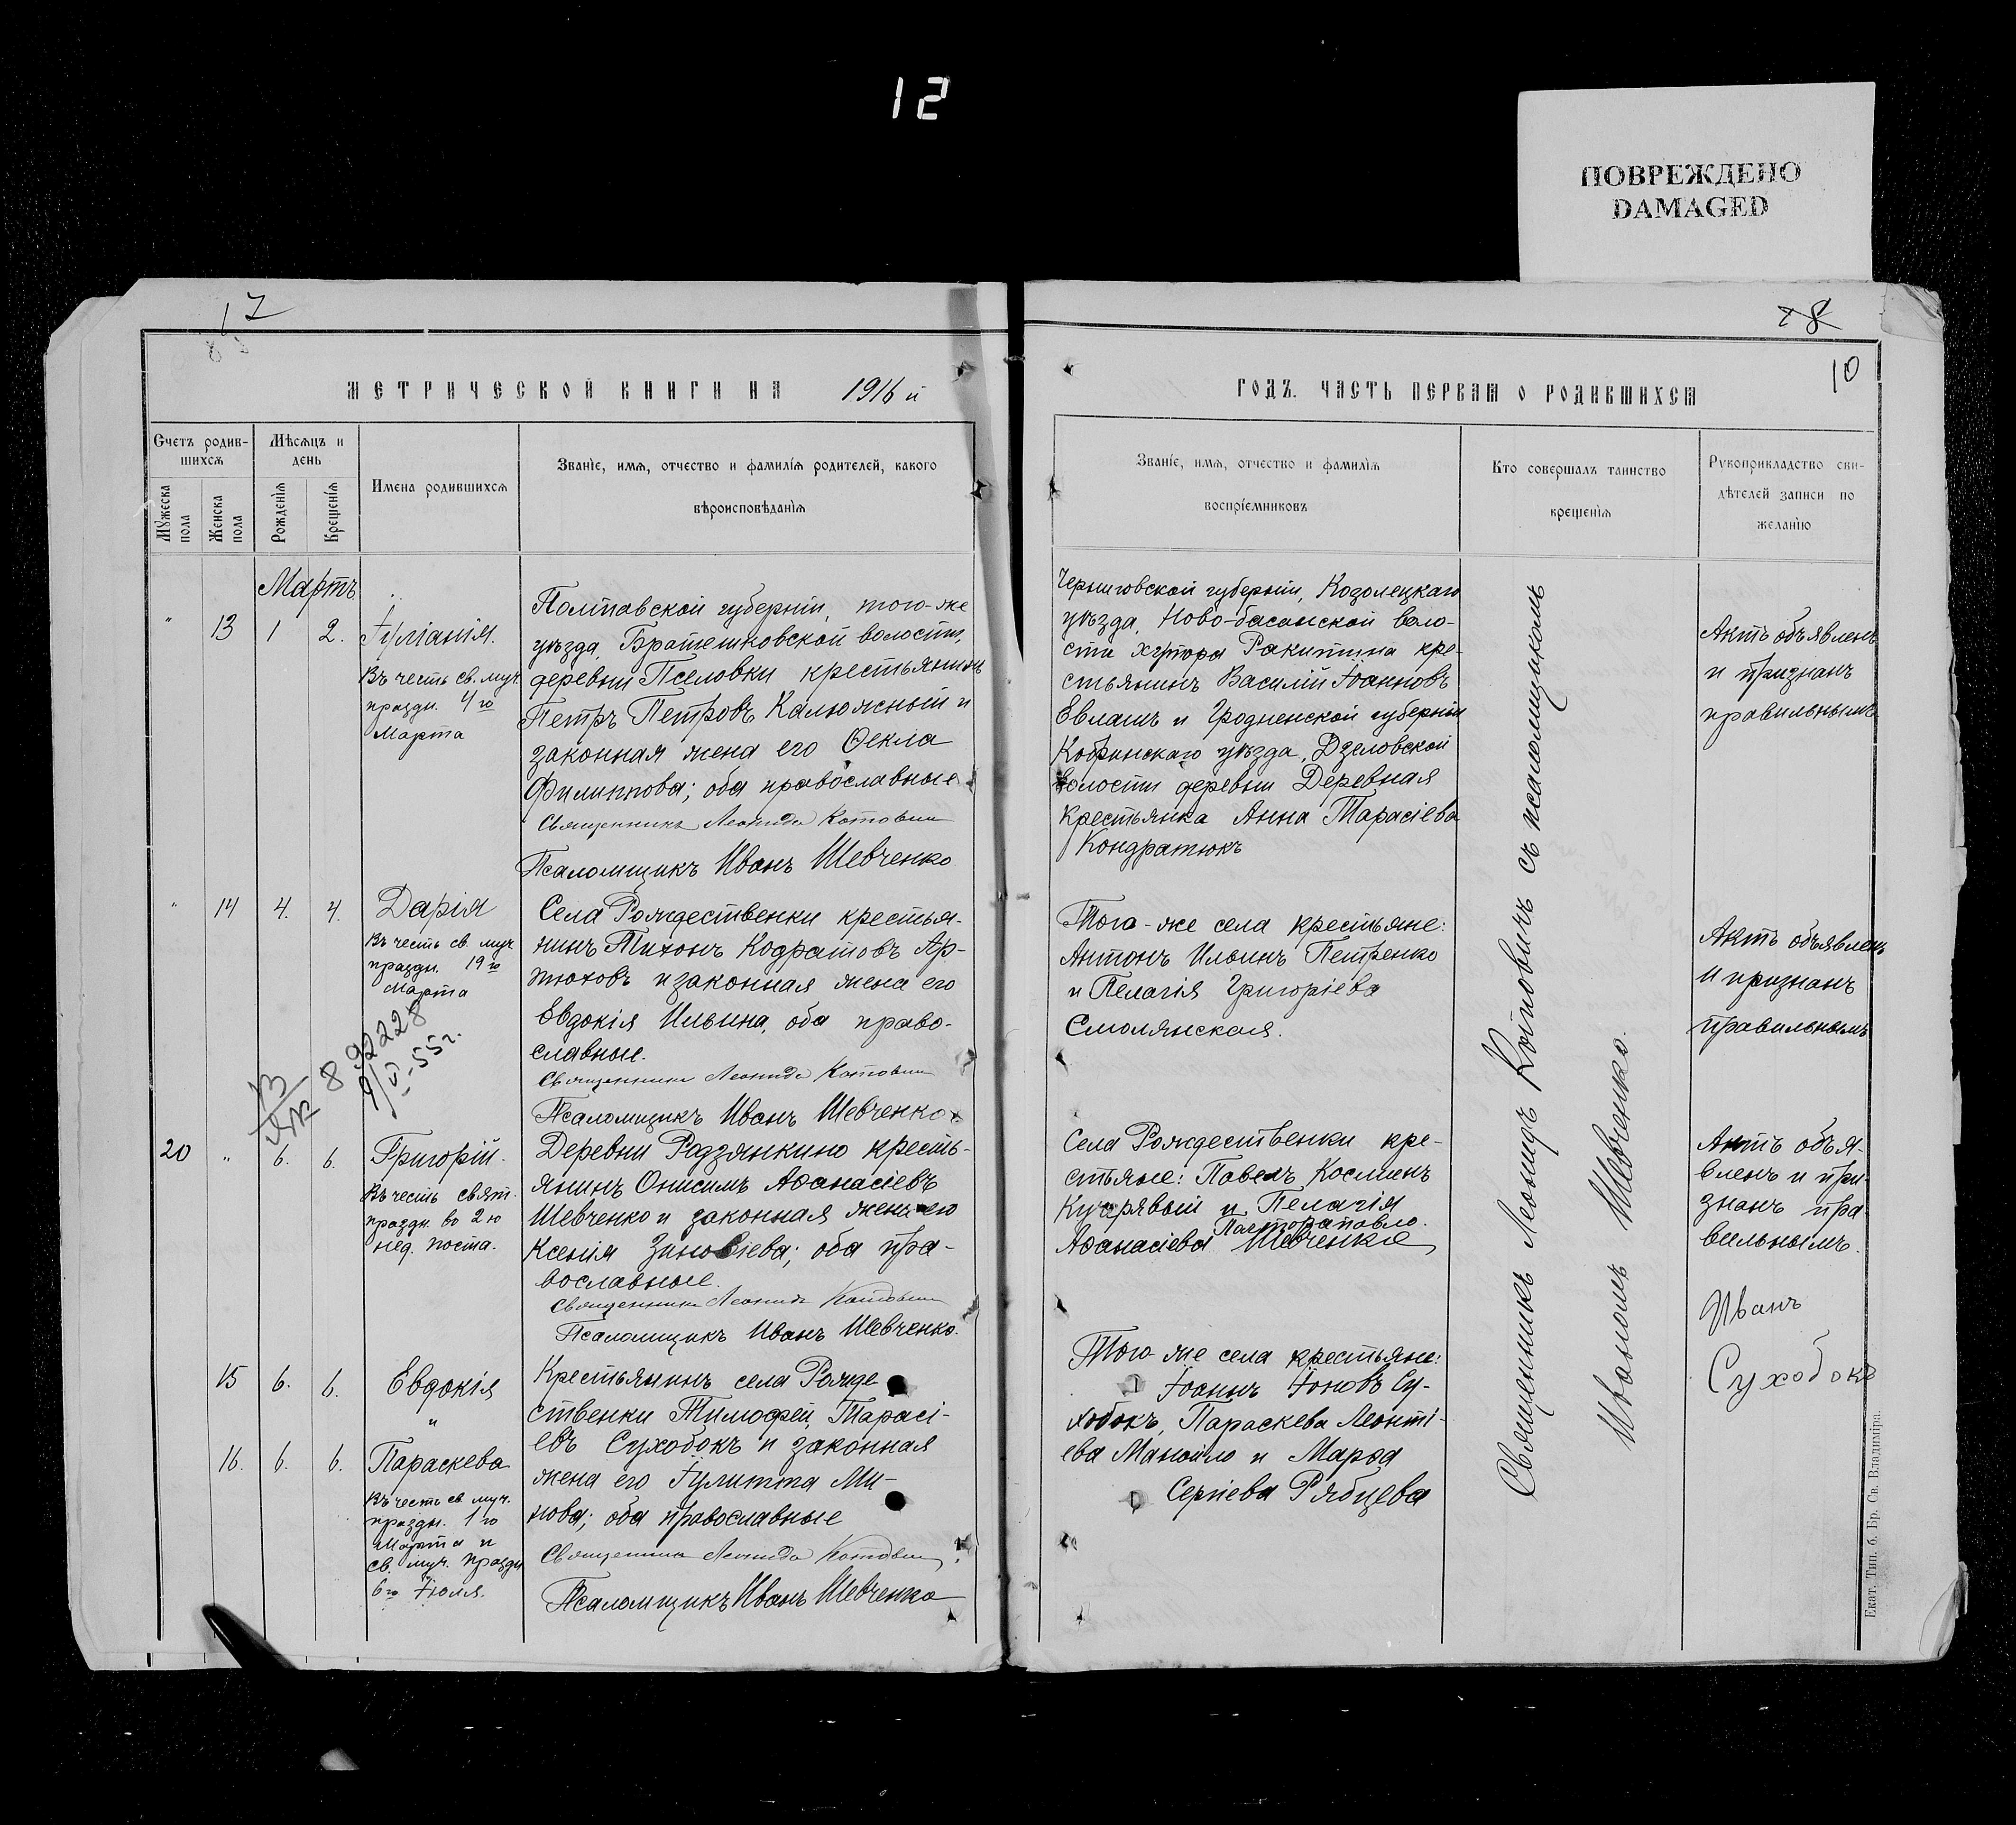 12
ПОВРЕЖДЕНО
DAMAGED
17
78
10
МЕТРИЧЕСКОЙ КНИГИ НА 1916 й
ГОДЪ. ЧАСТЬ ПЕРВАЯ О РОДИВШИХСЯ
Счетъ родив-
шихся
Мужеска пола
Женска пола
Мѣсяцъ и
день
Рожденія
Крещенія
Имена родившихся
Званіе, имя, отчество и фамилія родителей, какого
вѣроисповѣданія
Званіе, имя, отчество и фамилія
воспріемниковъ
Кто совершалъ таинство
крещенія
Рукоприкладство сви-
дѣтелей записи по
желанію
Мартъ
" 13 1 2.
Іуліанія.
Въ честь св. муч.
праздн. 4го
Марта
Полтавской губерніи, того-же
уѣзда, Братешковской волости,
деревни Пселовки крестьянинъ
Петръ Петровъ Калюжный и
законная жена его Ѳекла
Филиппова; оба православные
Священникъ Леонидъ Котович
Псаломщикъ Иванъ Шевченко
Черниговской губерніи, Козолецкаго
уѣзда, Ново-басанской воло-
сти хутора Ракитина кре-
стьянинъ Василій Іоанновъ
Евлашъ и Гродненской губерніи
Кобринскаго уѣзда, Дзеловской
волости деревни Деревная
крестьянка Анна Тарасіева
Кондратюкъ
Актъ объявленъ
и признанъ
правильнымъ
" 14 4. 4.
Дарія
Въ честь св. муч.
праздн. 19го
Марта
Села Рождественки крестья-
нинъ Тихонъ Кодратовъ Ар-
тюховъ и законная жена его
Евдокія Ильина, оба право-
славные.
Священникъ Леонидъ Котович
Псаломщикъ Иванъ Шевченко
Того-же села крестьяне:
Антонъ Ильинъ Петренко
и Пелагія Григоріева
Смолянская.
Актъ объявленъ
и признанъ
правильнымъ
892228
9/V-55г.
20 " 6. 6.
Григорій.
Въ честь свят.
праздн. во 2ю
нед. поста.
Деревни Родзянкино кресть-
янинъ Онисимъ Аѳанасіевъ
Шевченко и законная жена его
Ксенія Зиновіева; оба пра-
вославные.
Священникъ Леонидъ Котович
Псаломщикъ Иванъ Шевченко.
Села Рождественки кре-
стьяне: Павелъ Косминъ
Кучрявый и Пелагія
Аѳанасіева Шевченко
Актъ объя-
вленъ и при-
знанъ пра-
вильнымъ.
15 6. 6.
Евдокія
"
16. 6. 6.
Параскева
Въ честь св. муч.
праздн. 1го
Марта и
св. муч. праздн
6го Іюля.
Крестьянинъ села Рожде
ственки Тимофей Тарасі-
евъ Сухобокъ и законная
жена его Іулитта Ми-
нова; оба православные
Священникъ Леонидъ Котович
Псаломщикъ Иванъ Шевченко
Того же села крестьяне:
Іоаннъ Іоновъ Су-
хобокъ, Параскева Леонті-
ева Манойло и Марѳа
Сергіева Рябцева
Иванъ
Сухобокъ
Священникъ Леонидъ Котовичъ съ псаломщикомъ
Иваномъ Шевченко.
Екат. Тип. б. Бр. Св. Владиміра.